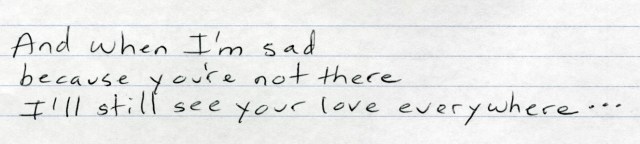 And when I'm sad
because you're not there
I'll still see your love everywhere...